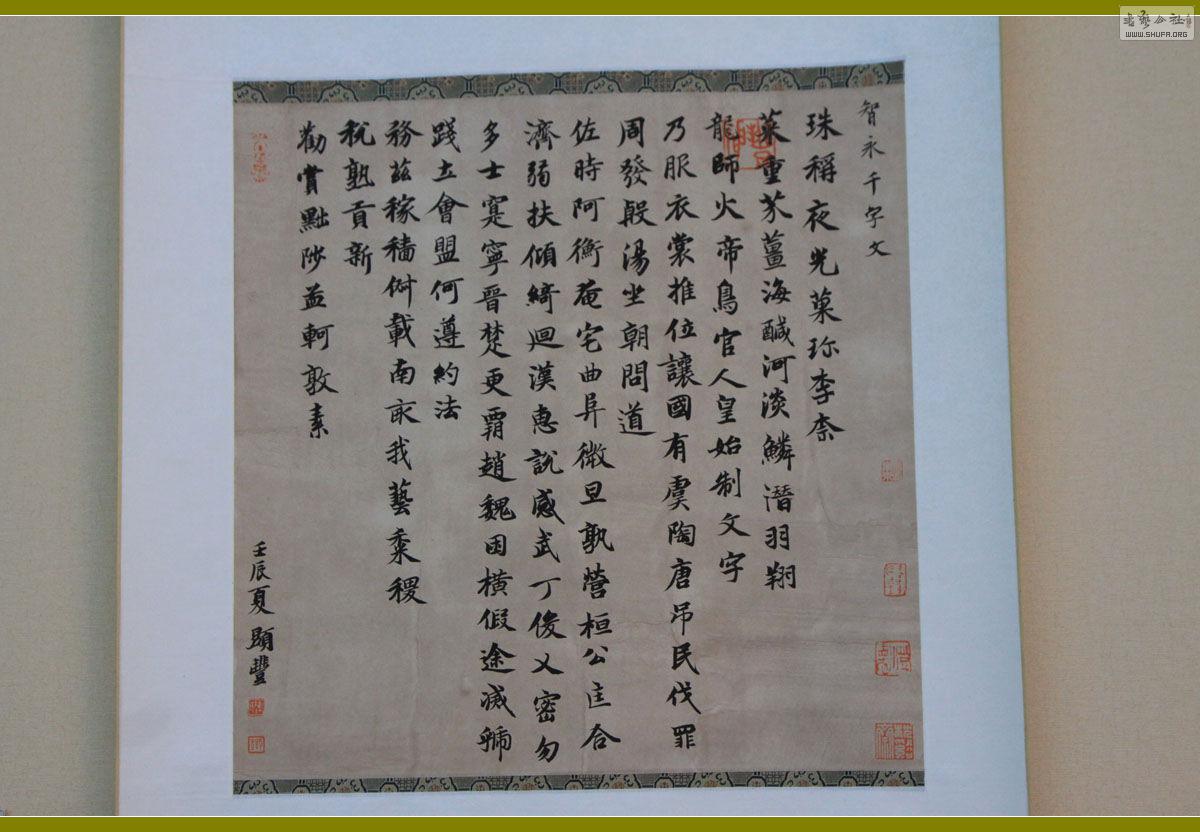 智永千字文
珠稱夜光菓珎李柰
菜重芥薑海醎河淡鱗潛羽翔
龍師火帝鳥官人皇始制文字
乃服衣裳推位讓國有虞陶唐吊民伐罪
周發殷湯坐朝問道
佐時阿衡奄宅曲阜微旦孰營桓公匡合
濟弱扶傾綺迴漢惠說感武丁俊乂密勿
多士寔寧晉楚更霸趙魏困橫假途滅虢
踐土會盟何遵約法
務茲稼穡俶載南畝我藝黍稷
稅熟貢新
勸賞黜陟孟軻敦素
壬辰夏顯豐
書藝公社
WWW.SHUFA.ORG